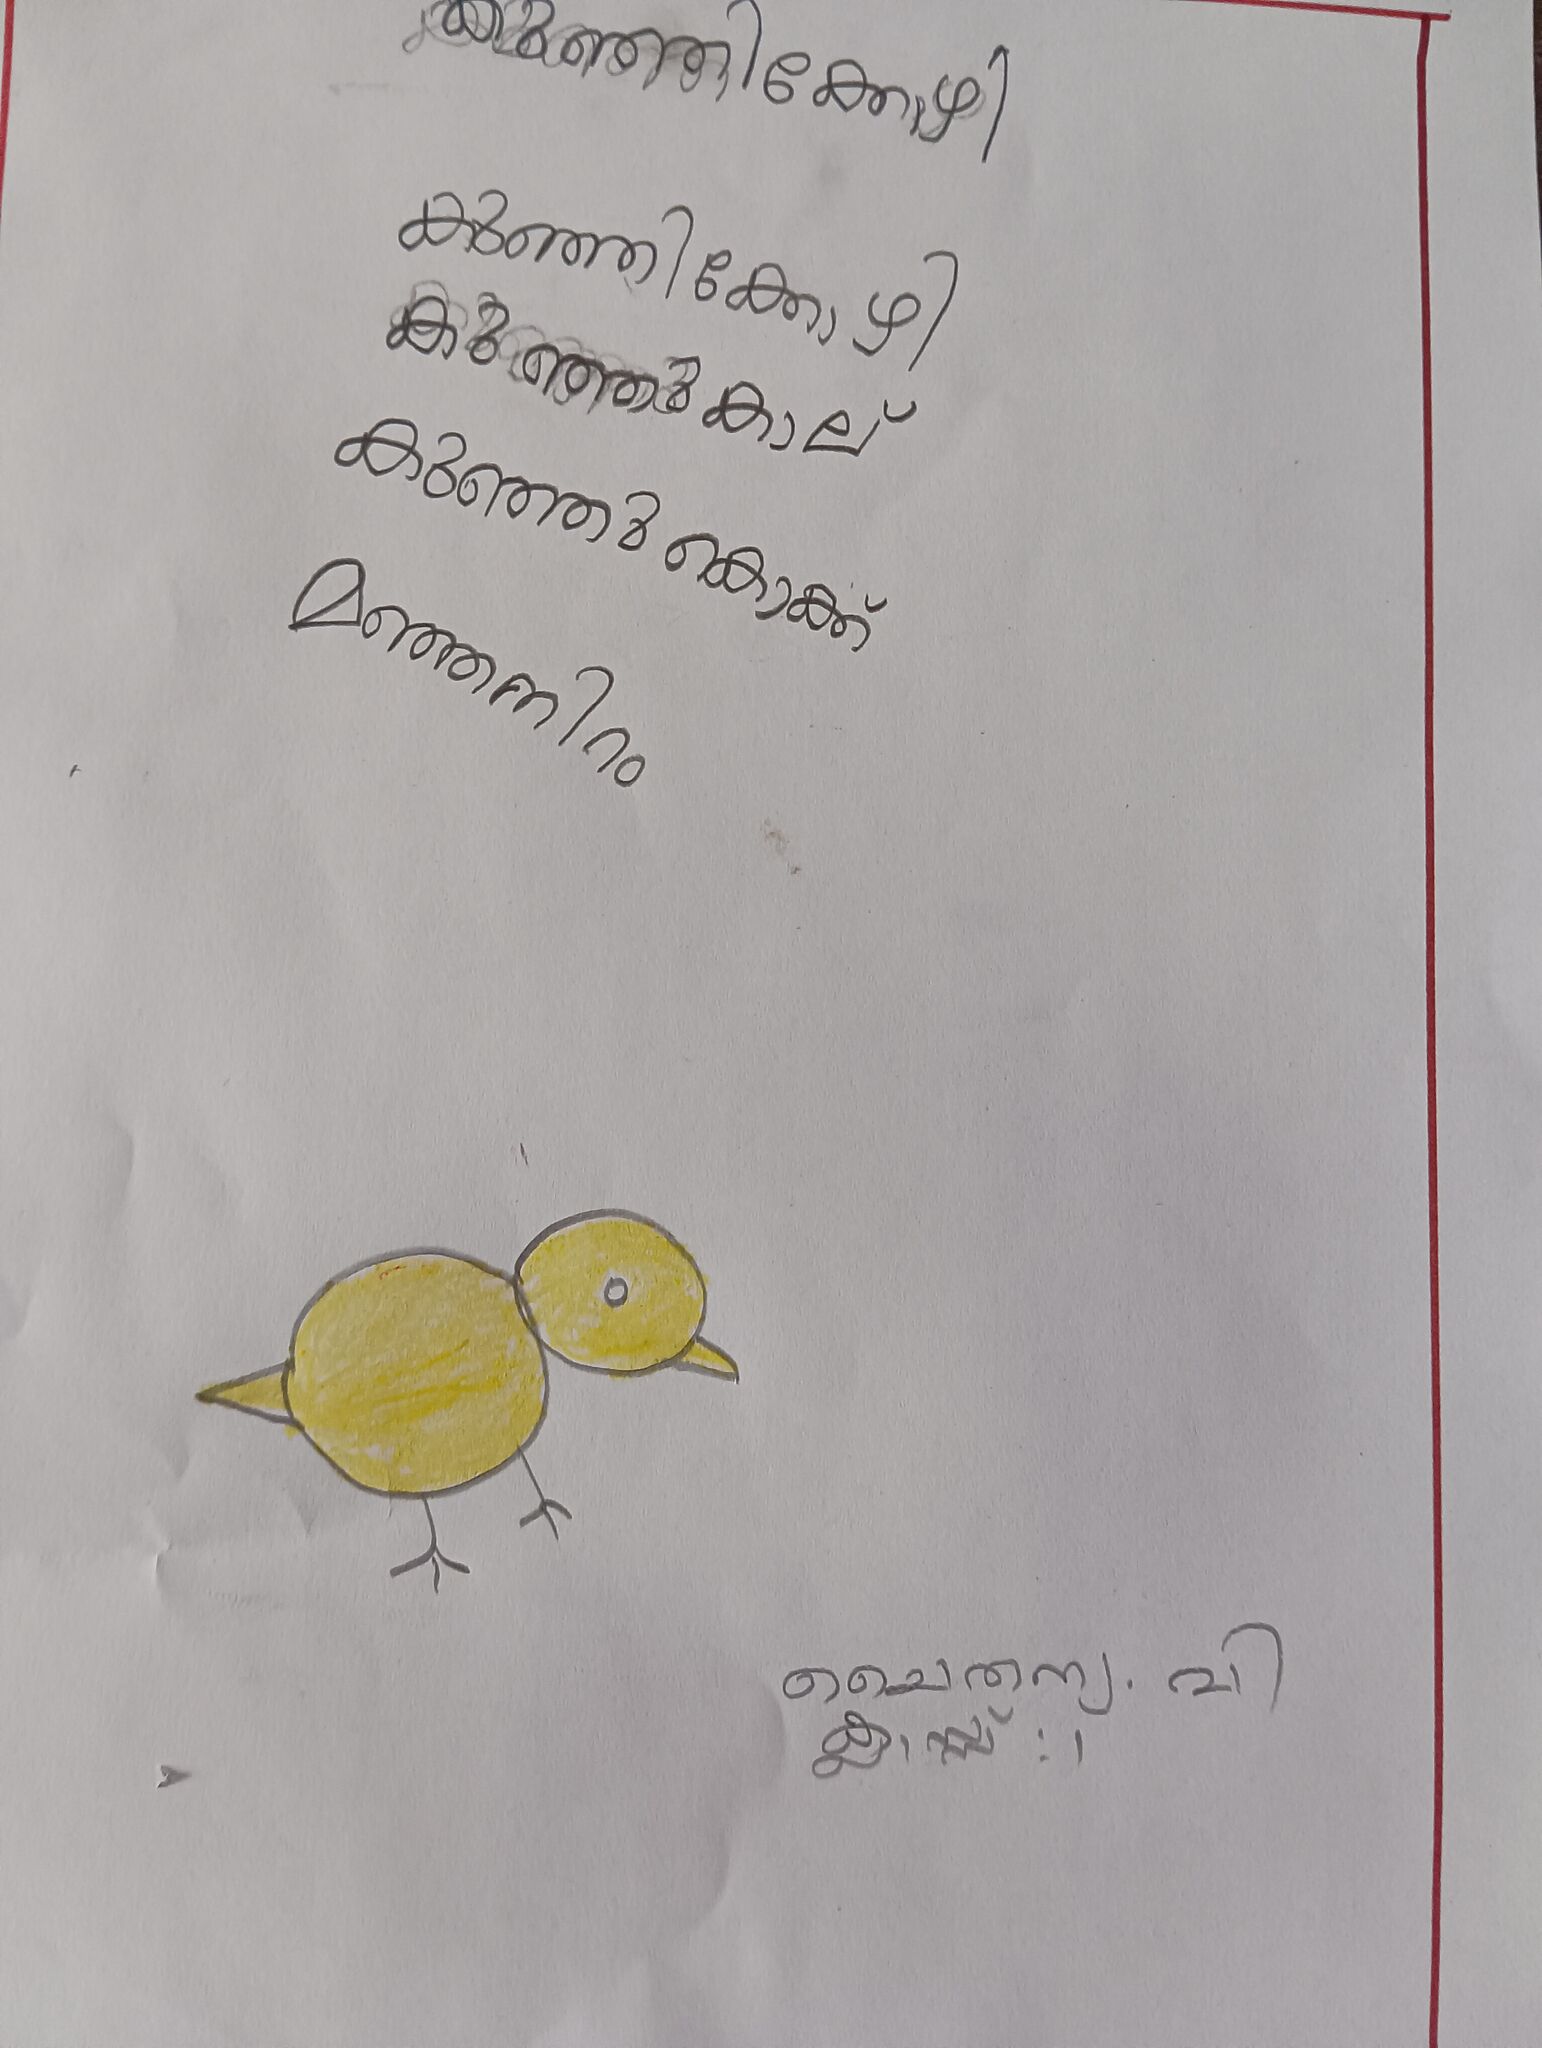 കുഞ്ഞിക്കോഴി
കുഞ്ഞിക്കോഴി
കുഞ്ഞുകാല്
കുഞ്ഞുകൊക്ക്
മഞ്ഞനിറം
ചൈതന്യ. വി
ക്ലാസ്സ് : 1